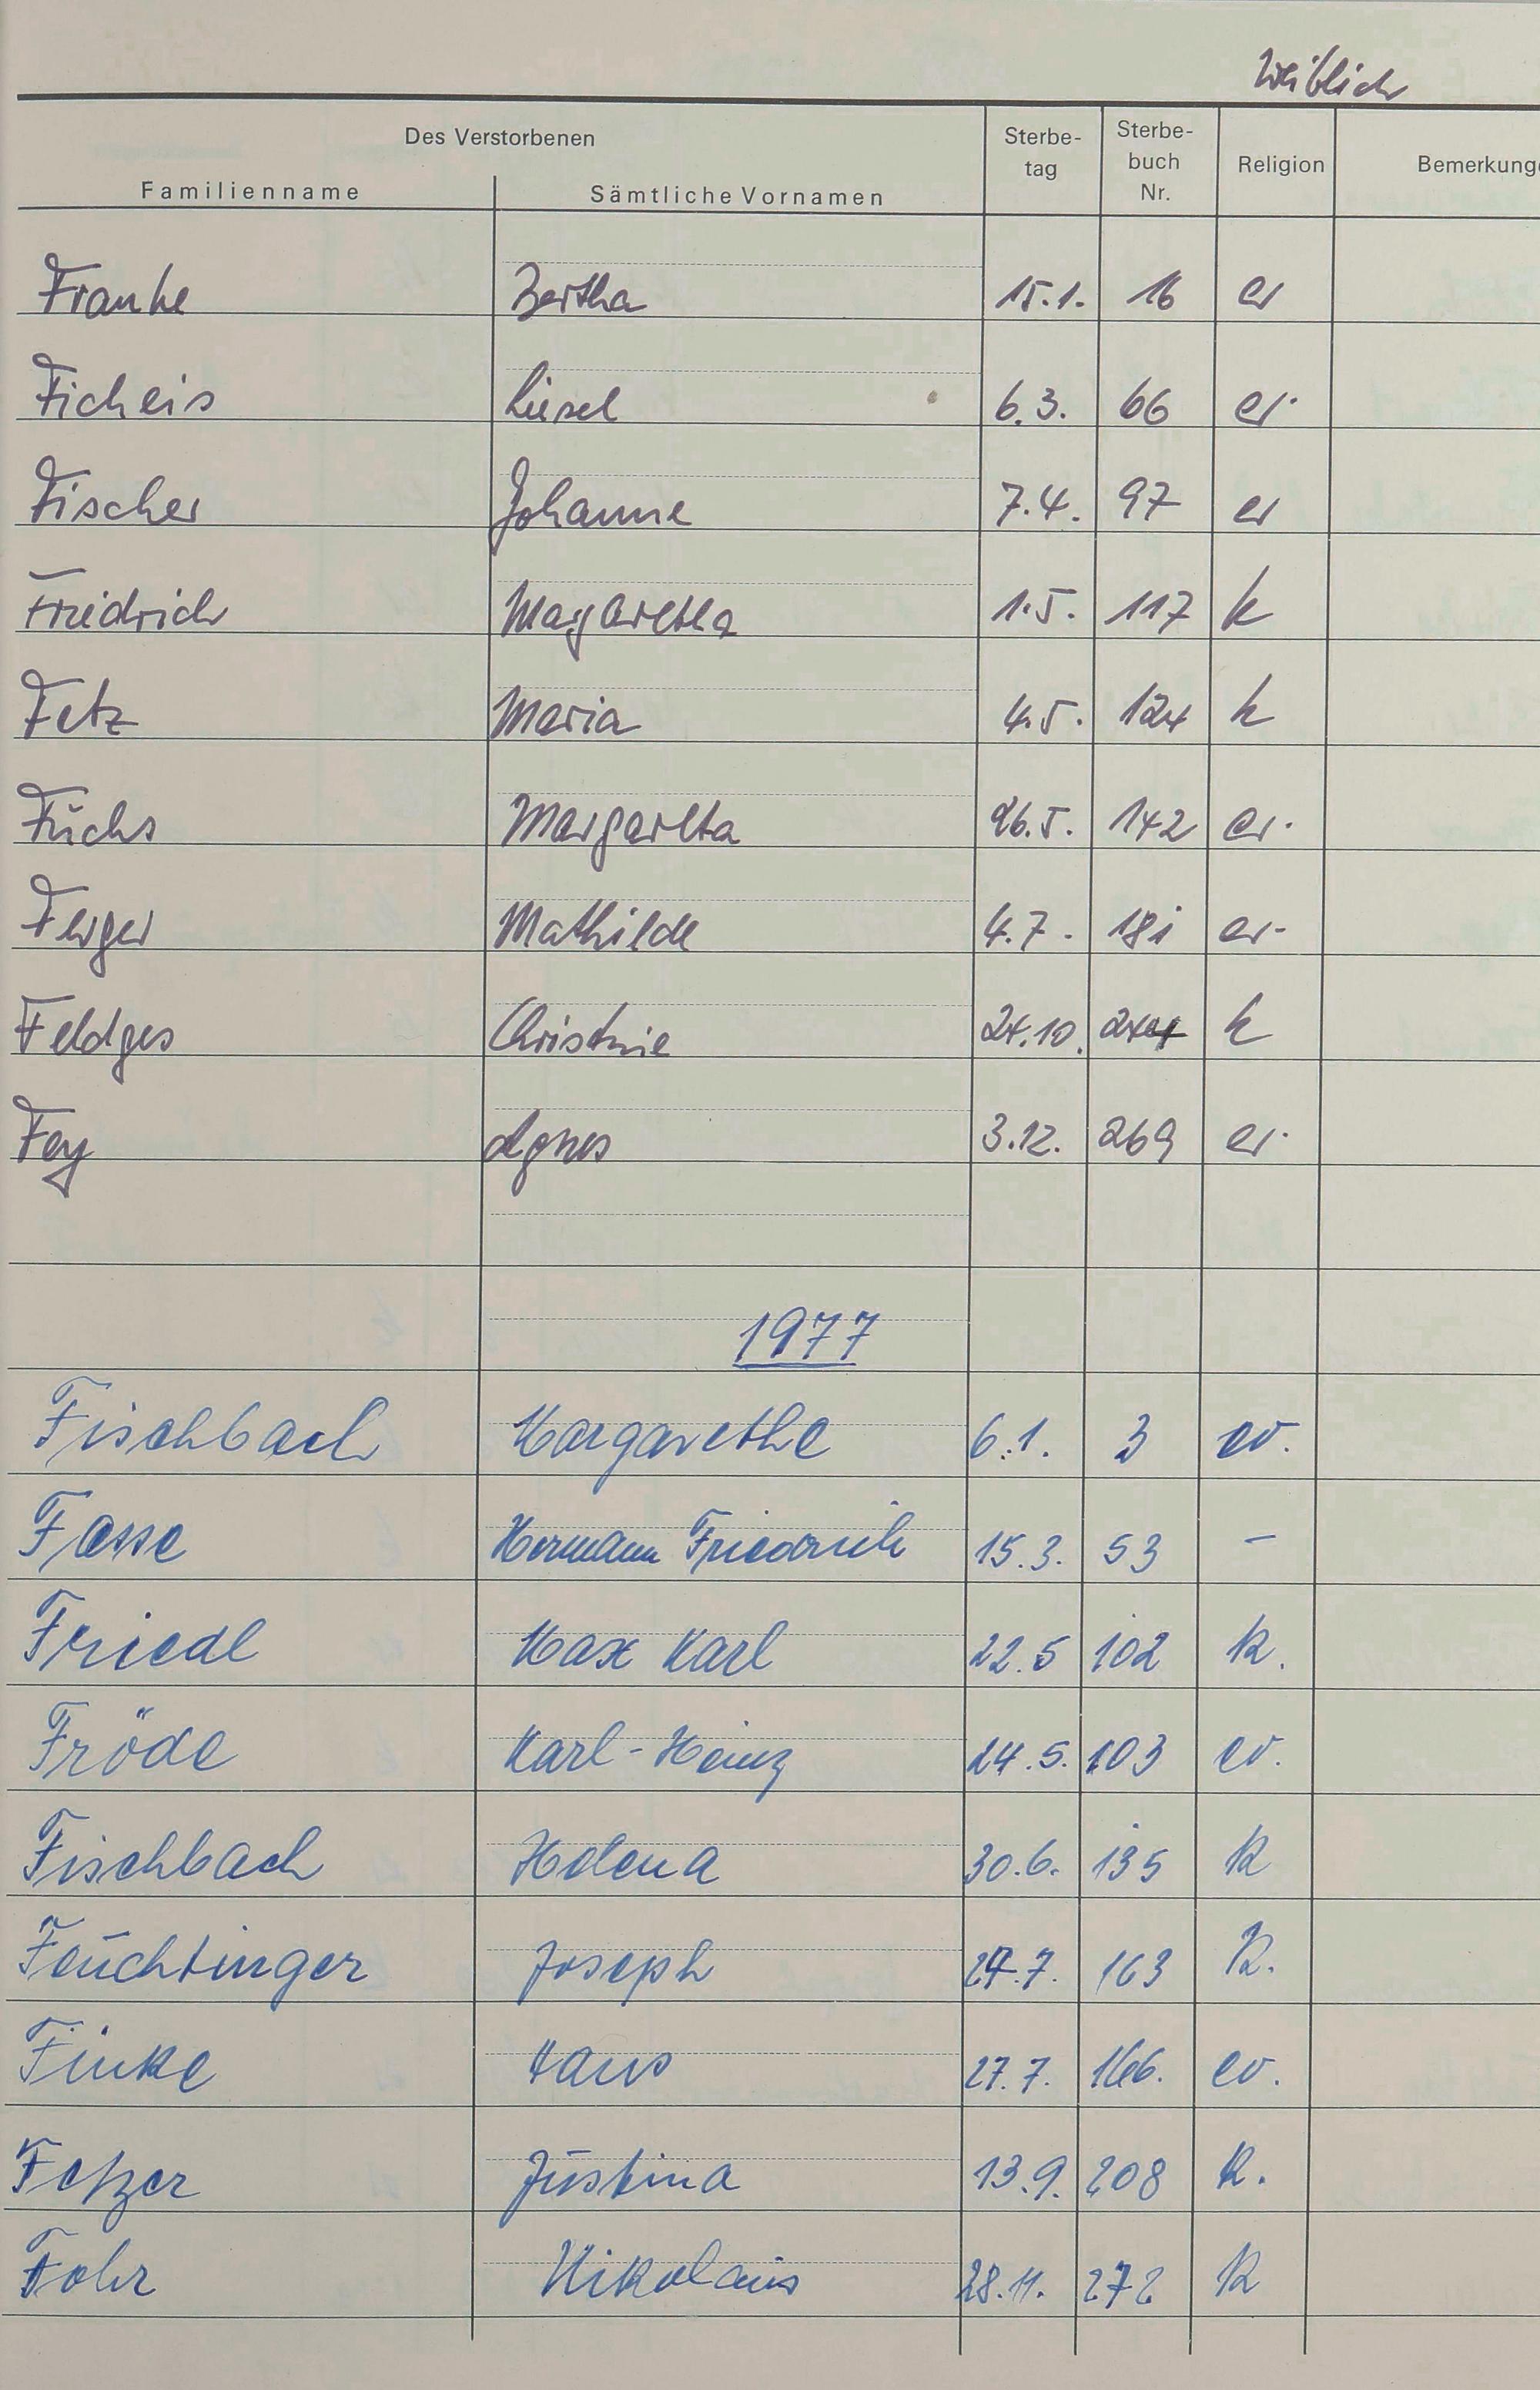 weiblich
Des Verstorbenen
Familienname Sämtliche Vornamen Sterbe-tag Sterbe-buch Nr. Religion Bemerkung
Franke Bertha 15.1. 16 ev
Ficheis Liesel 6.3. 66 ev.
Fischer Johanne 7.4. 97 ev
Friedrich Margaretha 1.5. 117 k
Fetz Maria 4.5. 124 k
Fuchs Margareta 26.5. 142 ev.
Ferger Mathilde 4.7. 181 ev.
Feldges Christine 24.10. k
Fey Agnes 3.12. 269 ev.
1977
Fischbach Margarethe 6.1. 3 ev.
Fasse Hermann Friedrich 15.3. 53 –
Friedl Max Karl 22.5 102 k.
Fröde Karl-Heinz 24.5. 103 ev.
Fischbach Helena 30.6. 135 k
Feuchtinger Joseph 27.7. 163 k.
Finke Hans 27.7. 166. ev.
Fetzer Justina 13.9. 208 k.
Fohr Nikolaus 28.11. 272 k